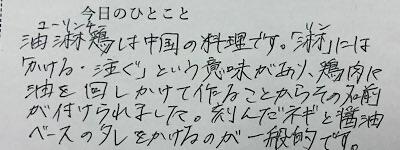 今日のひとこと
ユーリンチー
油淋鶏は中国の料理です。「淋」には
「かける・注ぐ」という意味があり、鶏肉に
油を回しかけて作ることからその名前
が付けられました。刻んだネギと醤油
ベースのタレをかけるのが一般的です。